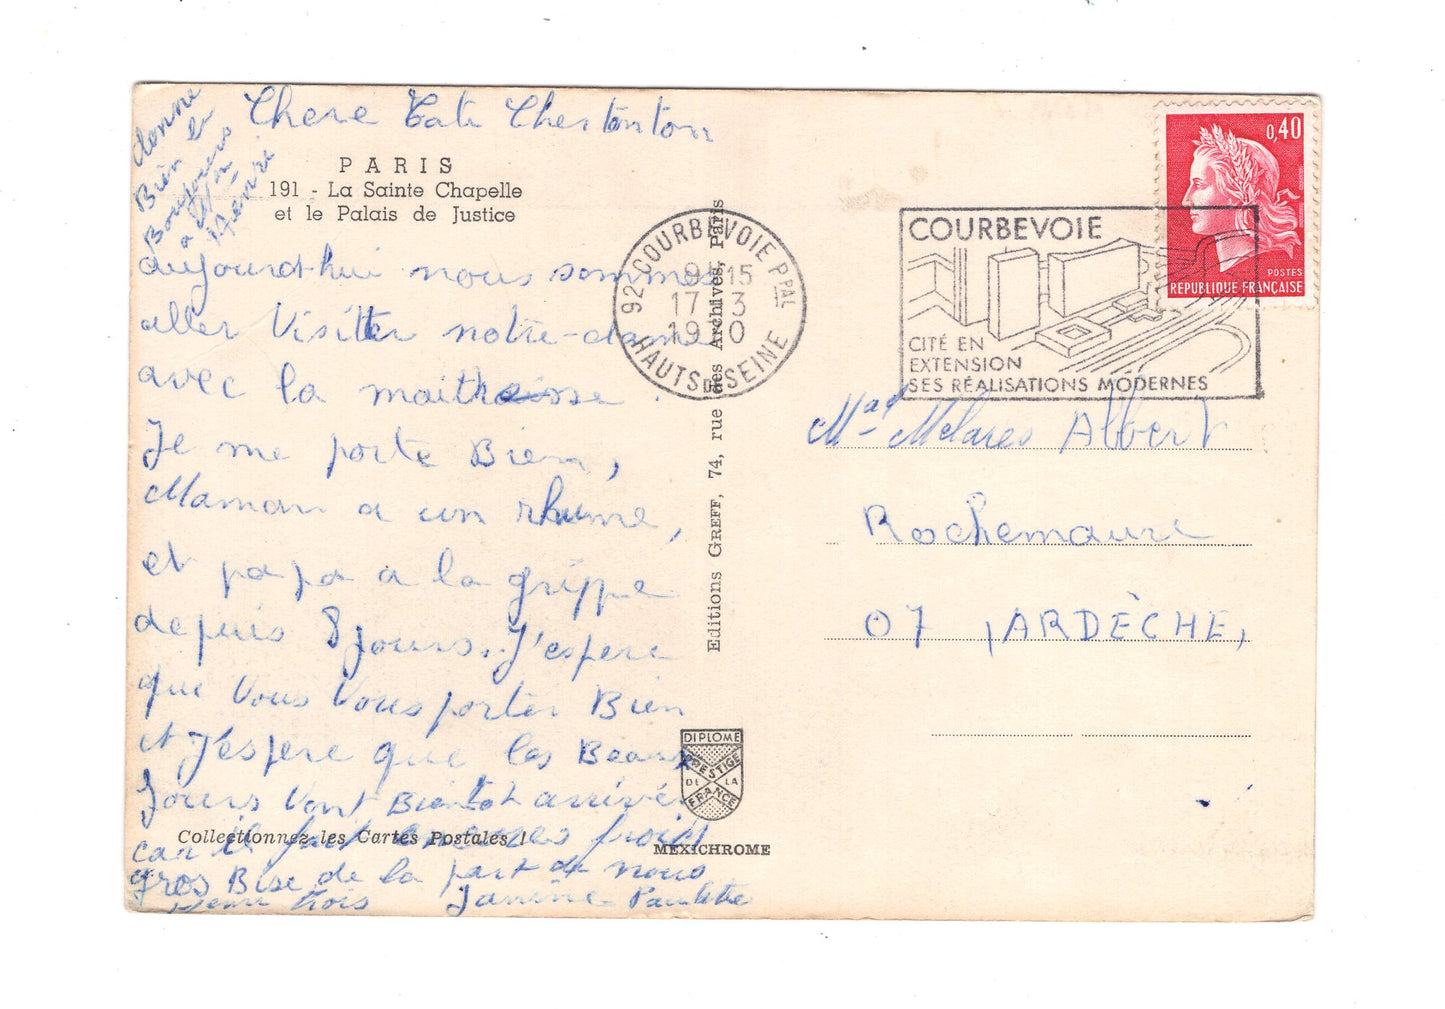 Chere Tati
donne
Bien le
Boujours
à
Henri
PARIS
191 - La Sainte Chapelle
et le Palais de Justice
aujourd-hui nous sommes
aller Visiter notre-dame
avec la
Je me porte Bien,
Maman a un rhume,
et papa a la grippe
depuis 8 jours. J'espere
que vous vous porter Bien
et J'espere que les Beaux
Jours vont Bientot arrivér
Collectionnez les Cartes Postales !
car il fait froid
gros Bise de la part de nous
trois Janine Paulette
Editions GREFF, 74, rue des Archives, Paris
DIPLOME
PRESTIGE
DE LA
FRANCE
MEXICHROME
92 COURBEVOIE PPAL
15
17 3
19 0
HAUTS DE SEINE
COURBEVOIE
CITÉ EN
EXTENSION
SES RÉALISATIONS MODERNES
0,40
POSTES
REPUBLIQUE FRANÇAISE
Albert
Rochemaure
07 ,ARDÈCHE,